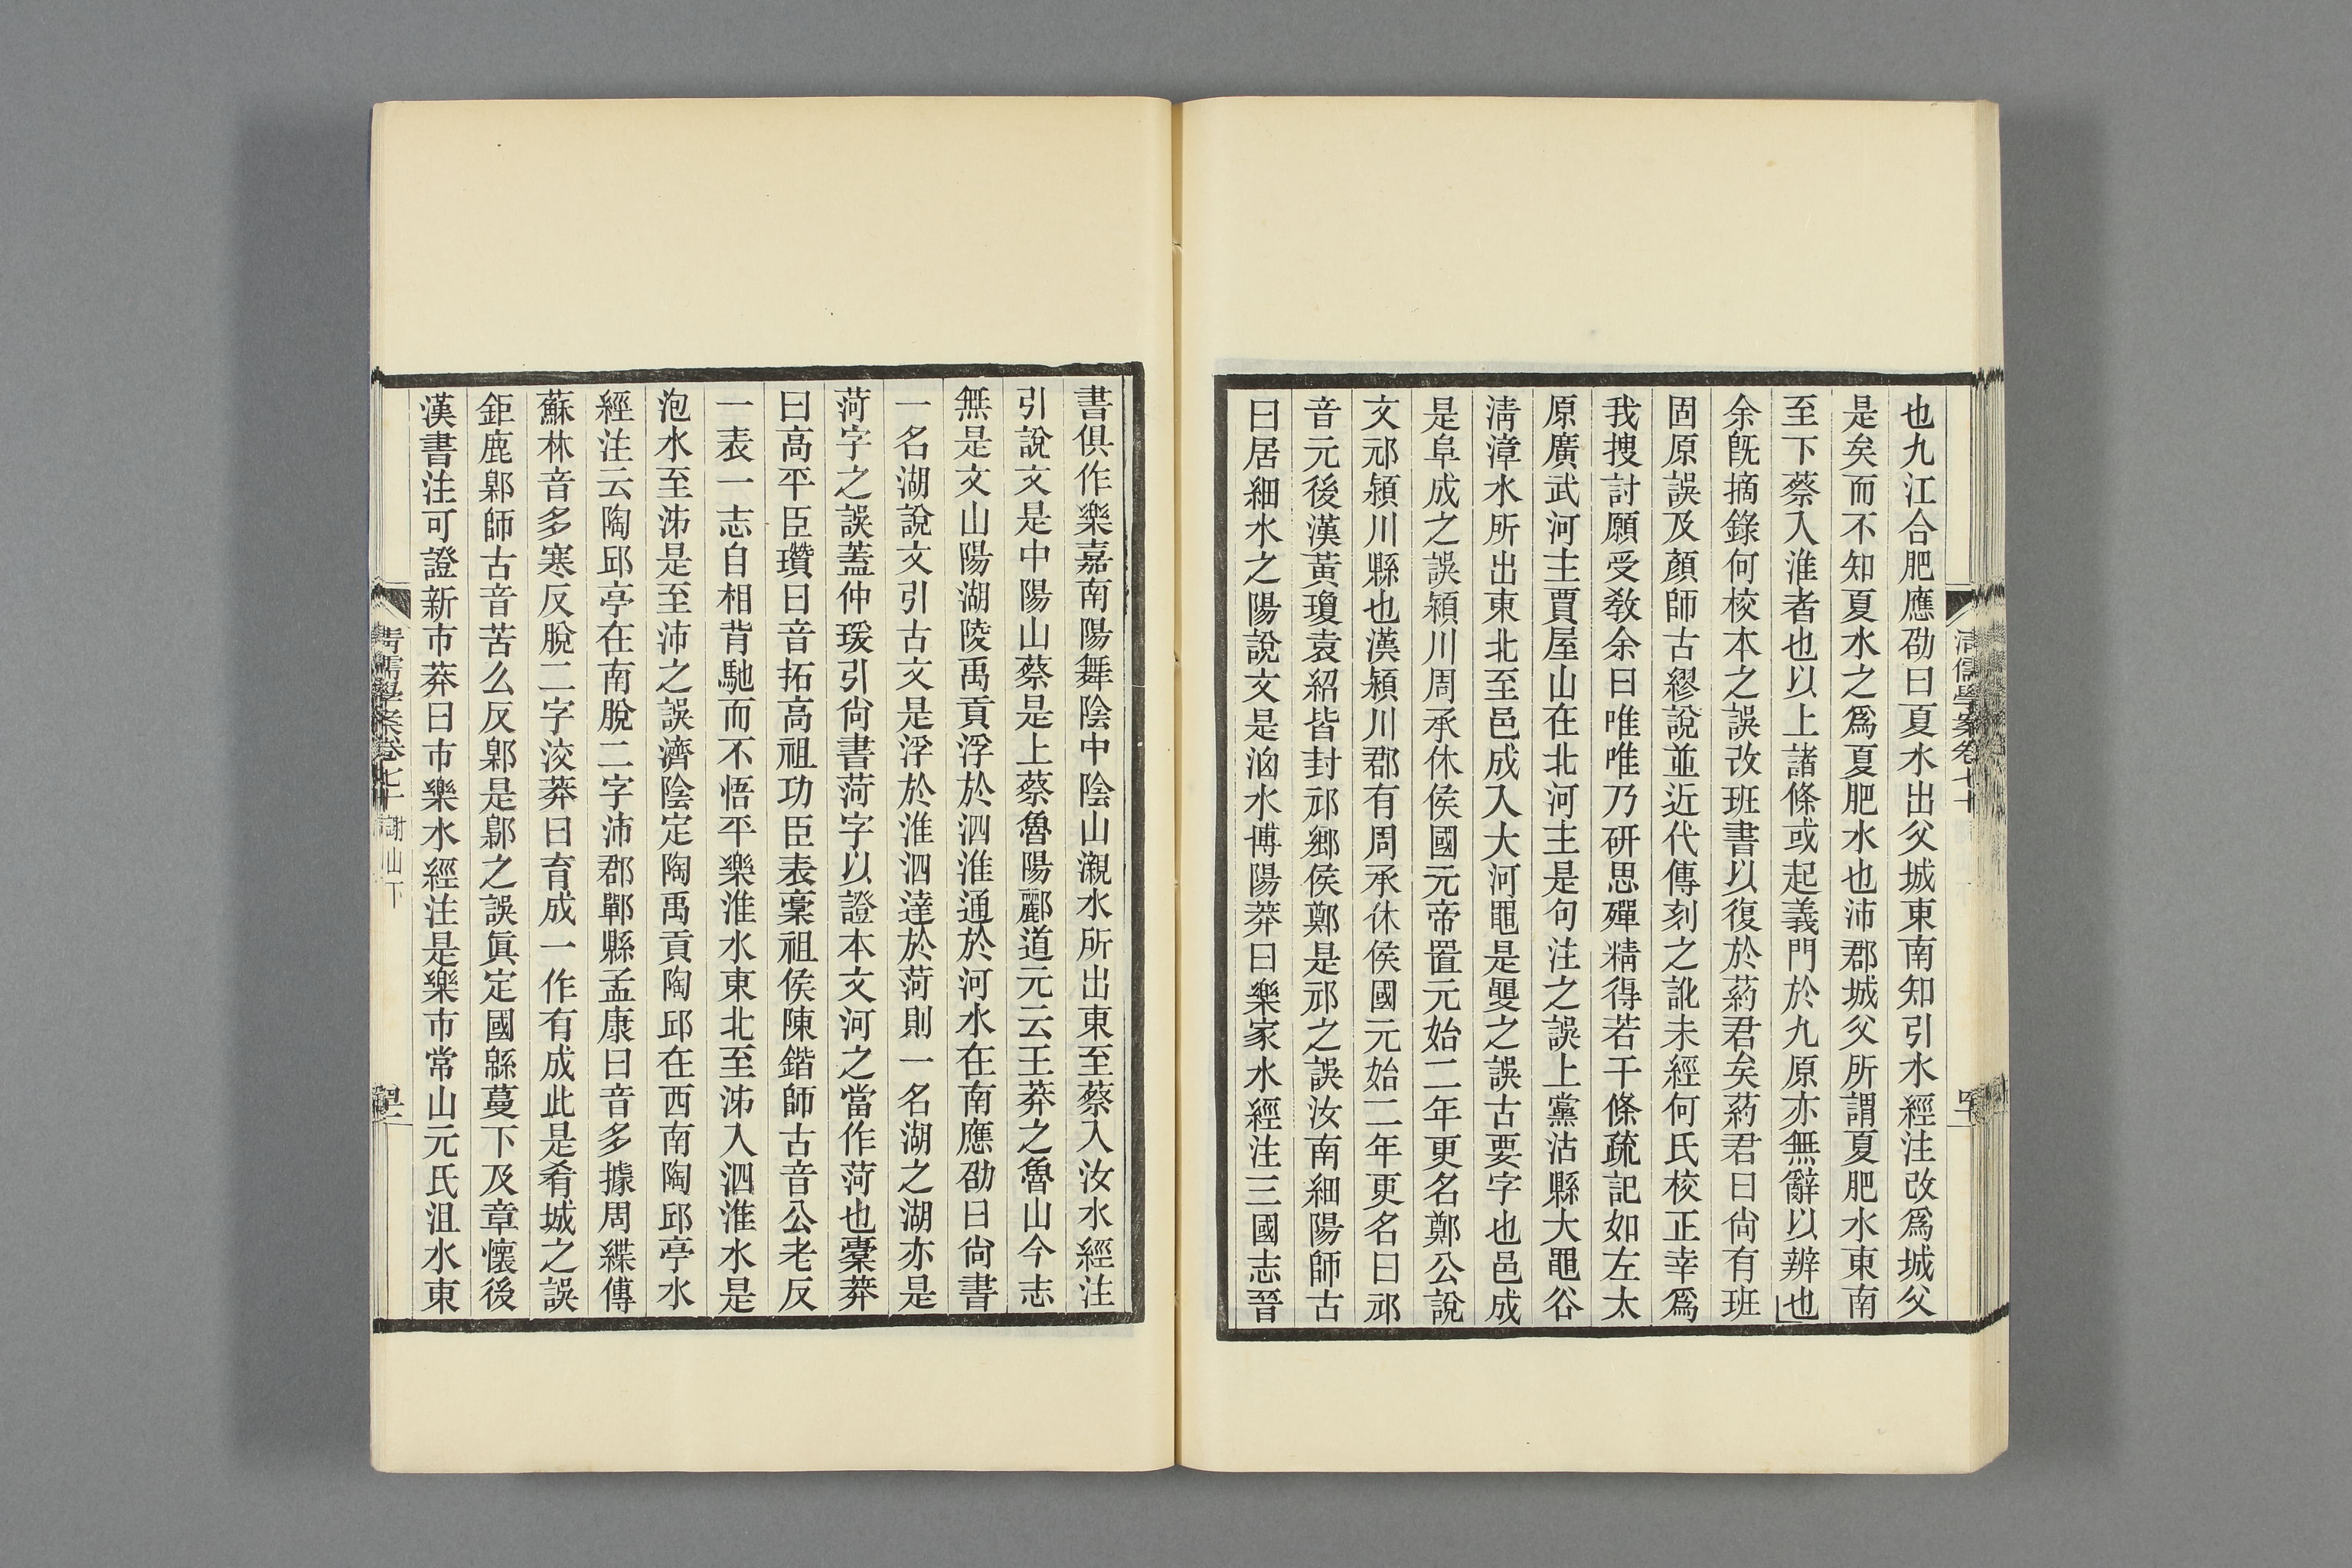 也九江合肥應劭曰夏水出父城東南知引水經注改爲城父
是矣而不知夏水之爲夏肥水也沛郡城父所謂夏肥水東南
至下蔡入淮者也以上諸條或起義門於九原亦無辭以辨也
余旣摘錄何校本之誤改班書以復於葯君矣葯君曰尙有班
固原誤及顏師古繆說並近代傳刻之訛未經何氏校正幸爲
我搜討願受敎余曰唯唯乃研思殫精得若干條疏記如左太
原廣武河主賈屋山在北河主是句注之誤上黨沾縣大黽谷
淸漳水所出東北至邑成入大河黽是㚇之誤古要字也邑成
是阜成之誤潁川周承休侯國元帝置元始二年更名鄭公說
文邟潁川縣也漢潁川郡有周承休侯國元始二年更名曰邟
音元後漢黃瓊袁紹皆封邟鄉侯鄭是邟之誤汝南細陽師古
曰居細水之陽說文是洇水博陽莽曰樂家水經注三國志晉
書俱作樂嘉南陽舞陰中陰山瀙水所出東至蔡入汝水經注
引說文是中陽山蔡是上蔡魯陽酈道元云王莽之魯山今志
無是文山陽湖陵禹貢浮於泗淮通於河水在南應劭曰尙書
一名湖說文引古文是浮於淮泗達於菏則一名湖之湖亦是
菏字之誤蓋仲瑗引尙書菏字以證本文河之當作菏也橐莽
曰高平臣瓚曰音拓高祖功臣表橐祖侯陳鍇師古音公老反
一表一志自相背馳而不悟平樂淮水東北至泲入泗淮水是
泡水至泲是至沛之誤濟陰定陶禹貢陶邱在西南陶邱亭水
經注云陶邱亭在南脫二字沛郡鄲縣孟康曰音多據周緤傳
蘇林音多寒反脫二字洨莽曰育成一作有成此是肴城之誤
鉅鹿鄡師古音苦么反鄡是鄡之誤眞定國緜蔓下及章懷後
漢書注可證新市莽曰市樂水經注是樂市常山元氏沮水東
淸儒學案卷七十
淸儒學案卷七十 謝山下